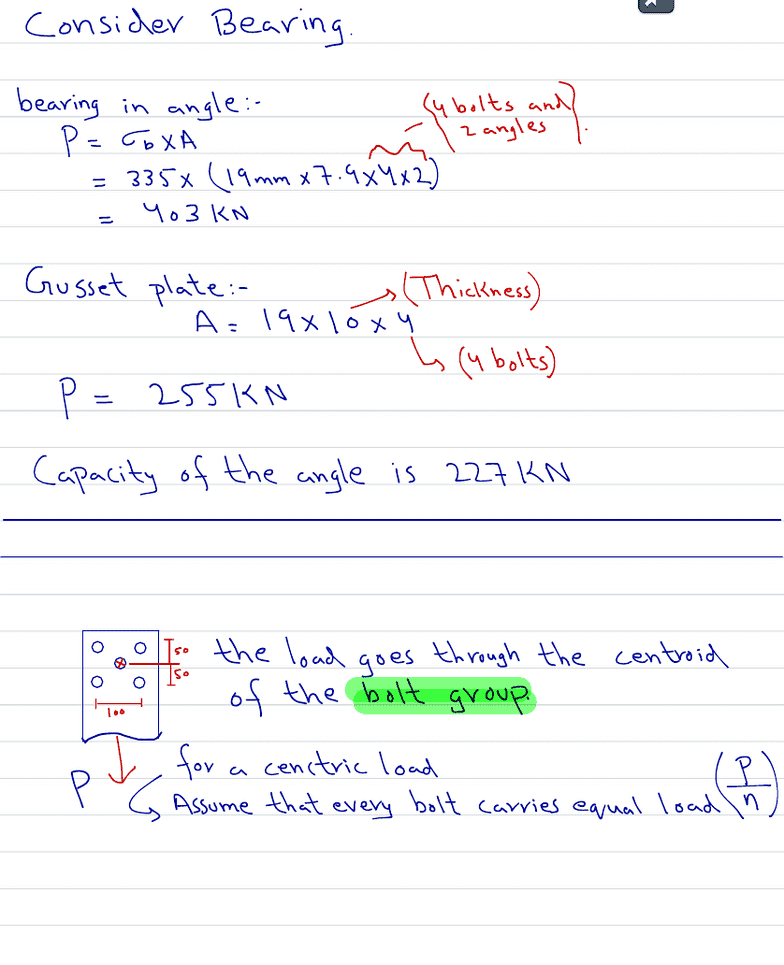 Consider Bearing.
bearing in angle:-
(4 bolts and
2 angles).
P = σb x A
= 335 x (19mm x 7.9 x 4 x 2)
= 403 KN
Gusset plate:-
(Thickness)
A = 19 x 10 x 4
(4 bolts)
P = 255 KN
Capacity of the angle is 227 KN
50 the load goes through the centroid
50 of the bolt group.
100
for a cenctric load
P Assume that every bolt carries equal load (P/n)